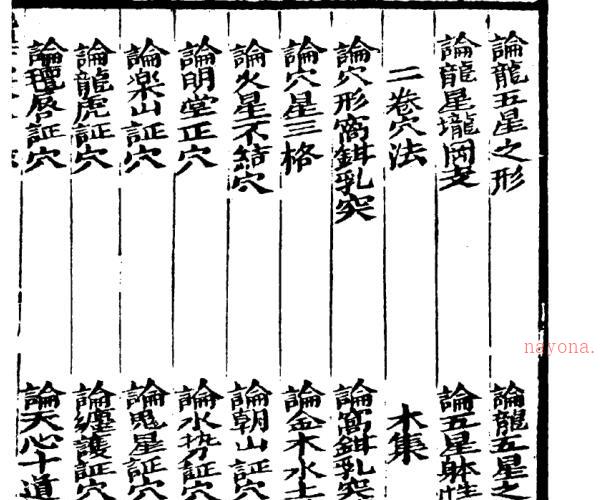 論龍五星之形
論龍五星之
論龍星壠岡支
論五星躰性
二卷穴法
木集
論穴形窩鉗乳突
論窩鉗乳突
論穴星三格
論金木水土
論火星不結穴
論朝山証穴
論明堂正穴
論水势証穴
論楽山証穴
論鬼星証穴
論龍虎証穴
論纏護証穴
論氊唇証穴
論天心十道
nayona.